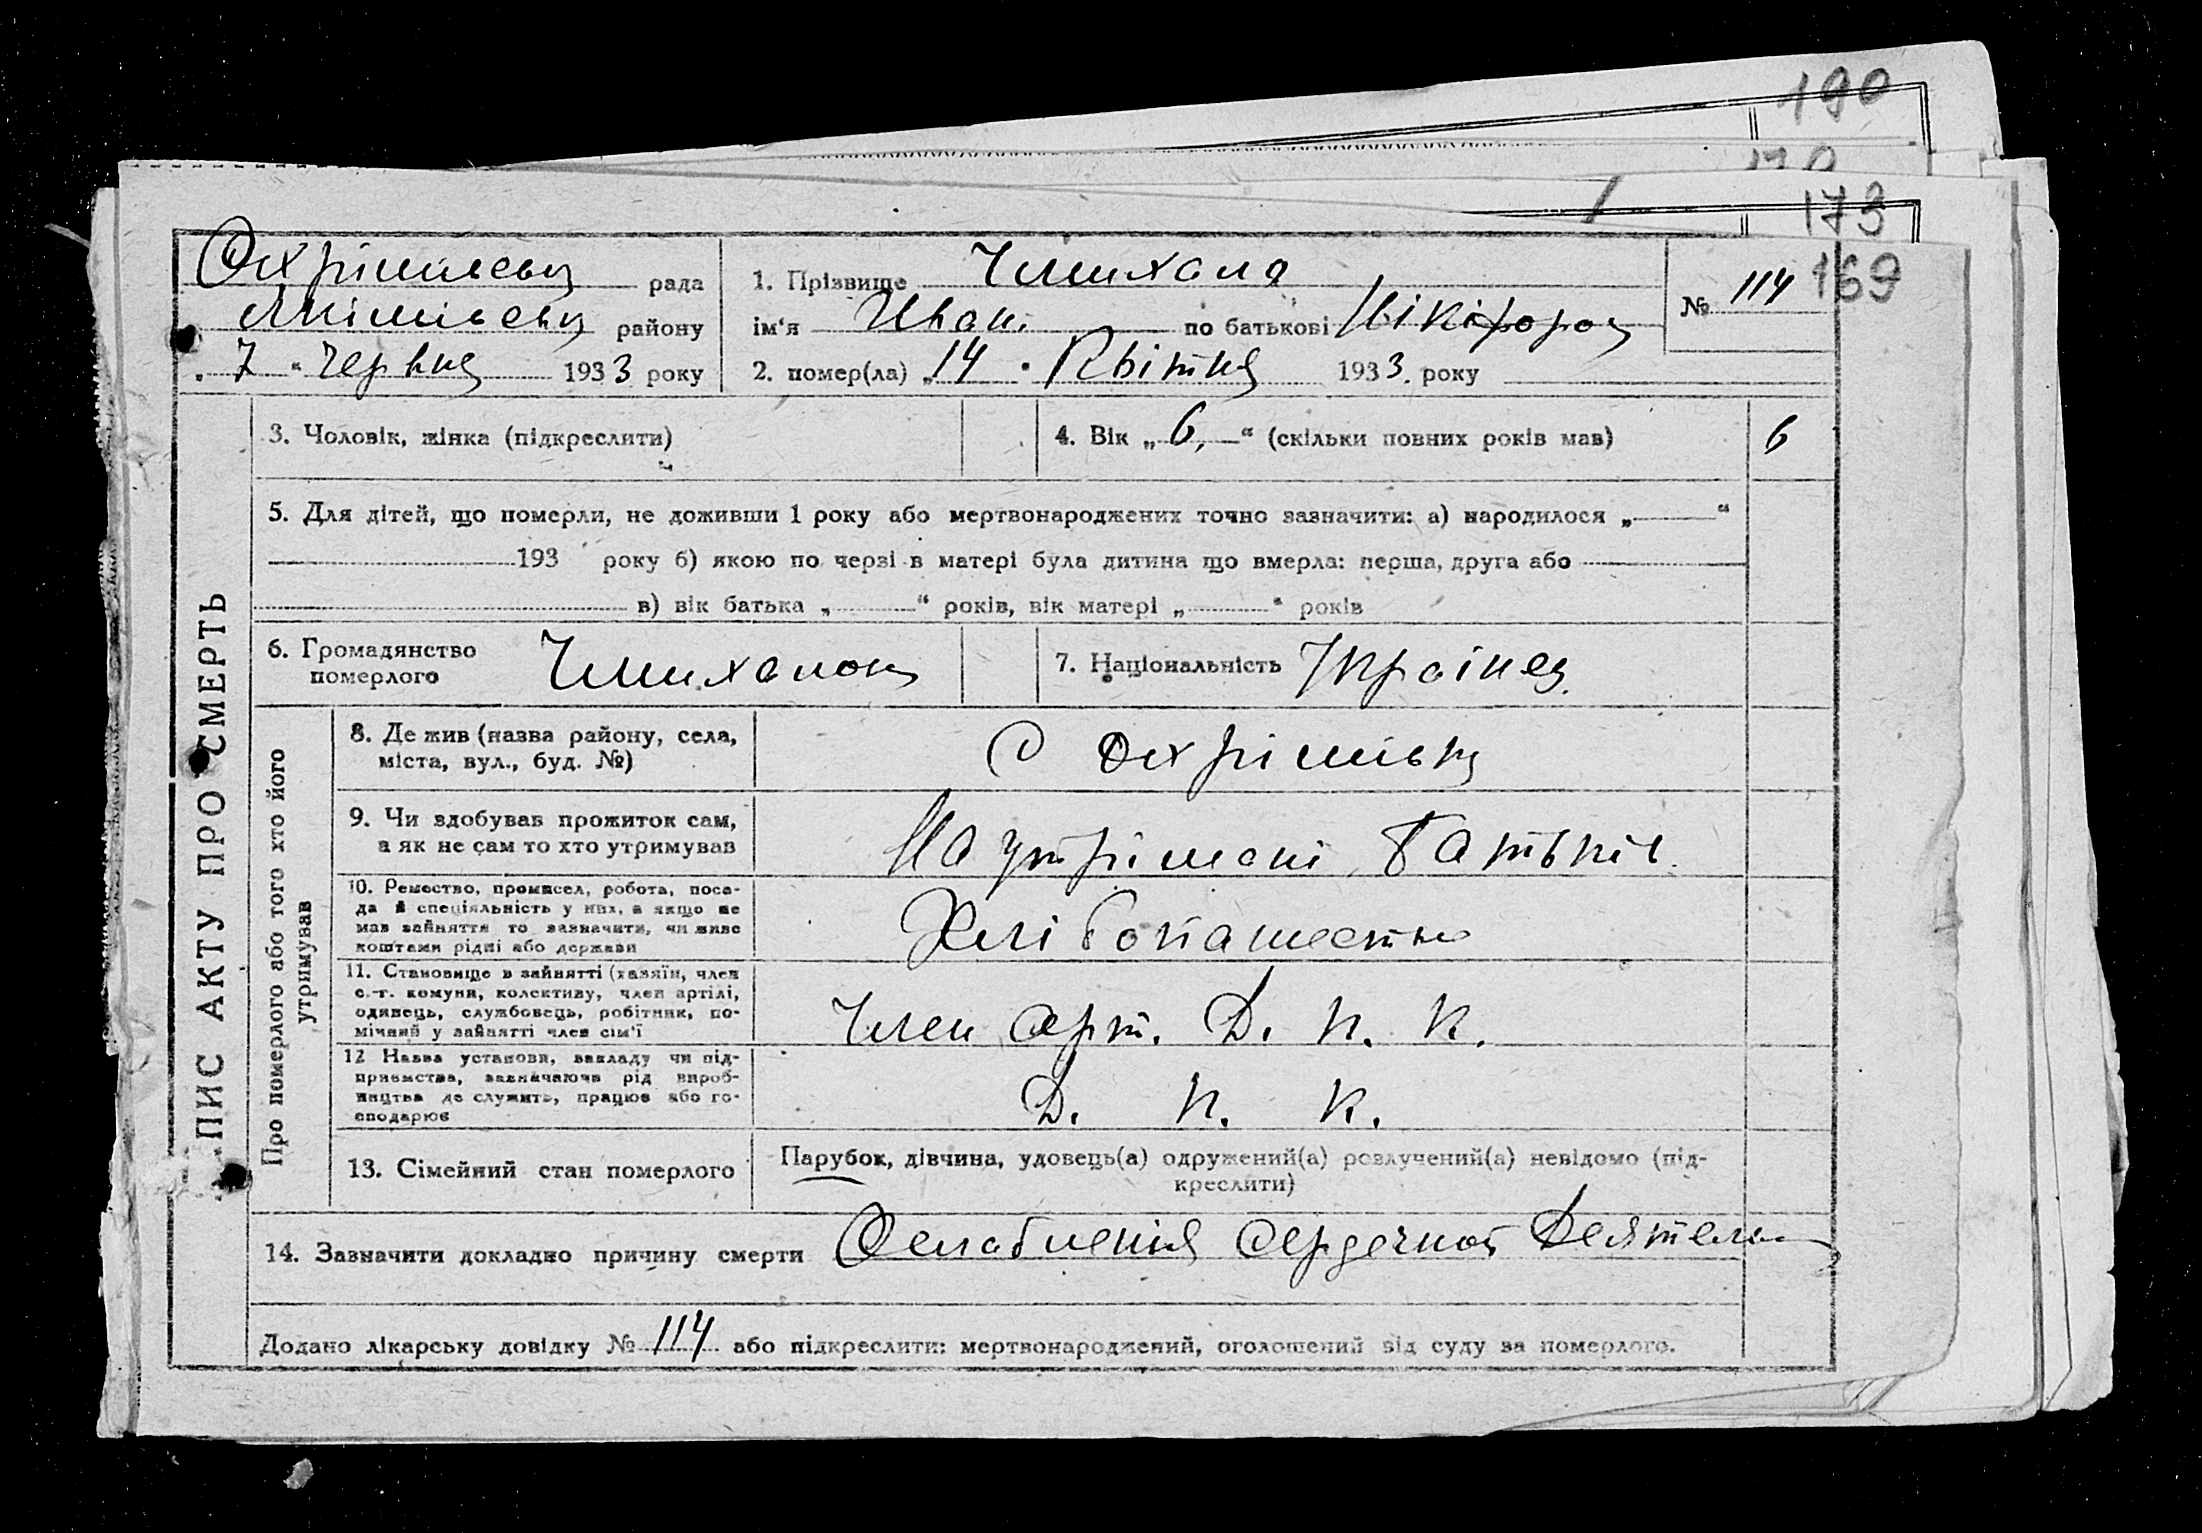 190
173
169
Охрімівськ рада
Якімівськ району
„ 7 “ Червня 1933 року
1. Прізвище Чмихало
ім‘я Иван по батькові Нікіфоров
2. помер(ла) „ 14 “ Квітня 1933 року
№ 114
ПИС АКТУ ПРО СМЕРТЬ
3. Чоловік, жінка (підкреслити)
4. Вік „ 6, “ (скільки повних років мав)
6
5. Для дітей, що померли, не доживши 1 року або мертвонароджених точно зазначити: а) народилося „ “
193 року б) якою по черзі в матері була дитина що вмерла: перша, друга або
в) вік батька „ “ років, вік матері „ “ років
6. Громадянство
померлого
7. Національність Українец
Про померлого або того хто його
утримував
8. Де жив (назва району, села,
міста, вул., буд. №)
С Охрімівка
9. Чи здобував прожиток сам,
а як не сам то хто утримував
На утрімані батьків
10. Ремество, промисел, робота, поса-
да й спеціяльність у них, а якщо не
мав зайняття то зазначити, чи живе
коштами рідні або держави
Хлібопашество
11. Становище в зайнятті (хазяїн, член
с.-г. комуни, колективу, член артілі,
одинець, службовець, робітник, по-
мічний у зайнятті член сім'ї
Член арт. Д. Н. К.
12 Назва установи, закладу чи під-
приємства, зазначаючи рід вироб-
ництва де служить, працює або го-
сподарює
Д. Н. К.
13. Сімейний стан померлого
Парубок, дівчина, удовець(а) одружений(а) розлучений(а) невідомо (під-
креслити)
14. Зазначити докладно причину смерти Ослабления Сердечной Деятельн
Додано лікарську довідку № 114 або підкреслити: мертвонароджений, оголошений від суду за померлого.